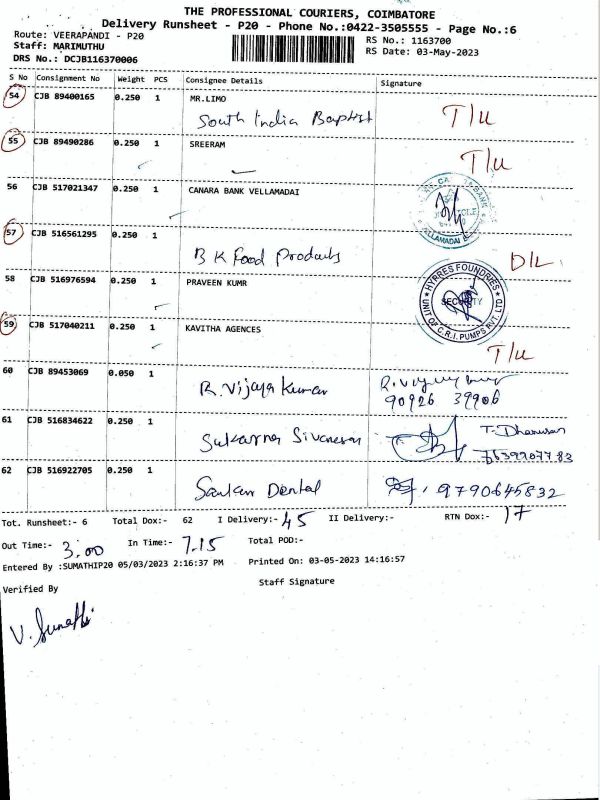 THE PROFESSIONAL COURIERS, COIMBATORE
Delivery Runsheet - P20 - Phone No.:0422-3505555 - Page No.:6
Route: VEERAPANDI - P20
RS No.: 1163700
Staff: MARIMUTHU
RS Date: 03-May-2023
DRS No.: DCJB116370006
S No Consignment No Weight PCS Consignee Details Signature
54 CJB 89400165 0.250 1 MR.LIMO
South India Baptist T/U
55 CJB 89490286 0.250 1 SREERAM
T/U
56 CJB 517021347 0.250 1 CANARA BANK VELLAMADAI
57 CJB 516561295 0.250 1
B K Food Products D/L
58 CJB 516976594 0.250 1 PRAVEEN KUMR
HYRRES FOUNDRIES
SECURITY
UNIT OF C.R.I. PUMPS PVT. LTD
59 CJB 517040211 0.250 1 KAVITHA AGENCES
T/U
60 CJB 89453069 0.050 1
R. Vijaya Kumar
90926 39906
61 CJB 516834622 0.250 1
Sukarna Sivanesan T. Dhanusan
7639907783
62 CJB 516922705 0.250 1
Sankar Dental 9790645832
Tot. Runsheet:- 6 Total Dox:- 62 I Delivery:- 45 II Delivery:- RTN Dox:- 17
Out Time:- 3.00 In Time:- 7.15 Total POD:-
Entered By :SUMATHIP20 05/03/2023 2:16:37 PM Printed On: 03-05-2023 14:16:57
Staff Signature
Verified By
V. Sumathi